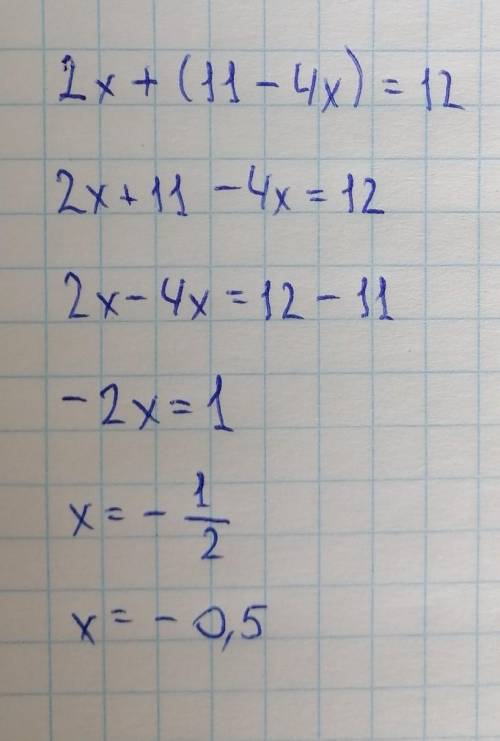 2x + (11 - 4x) = 12
2x + 11 - 4x = 12
2x - 4x = 12 - 11
- 2x = 1
x = - 1/2
x = - 0,5